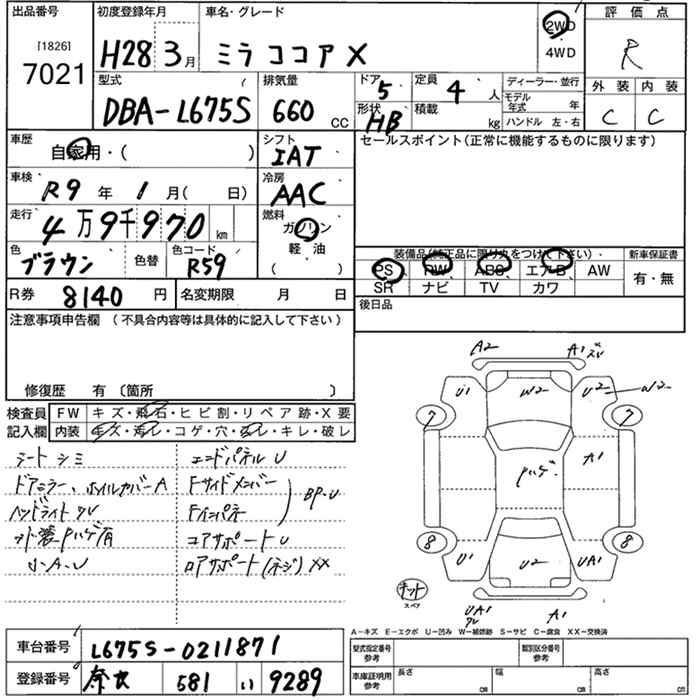 出品番号
[1826]
7021
初度登録年月
H28 3月
車名・グレード
ミラ ココア X
2WD
4WD
評価点
R
外装 内装
C C
型式
DBA-L675S
排気量
660 CC
ドア
5
定員
4 人
形状
HB
積載
kg
ディーラー・並行
モデル年式 年
ハンドル 左・右
車歴
自家用・( )
シフト
IAT
セールスポイント(正常に機能するものに限ります)
車検
R9 年 1 月( 日)
冷房
AAC
走行
4万9千970 km
燃料
ガソリン
軽・油
( )
色
ブラウン
色替
色コード
R59
装備品(純正品に限り丸をつけて下さい)
新車保証書
PS PW ABS エアB AW
有・無
SR ナビ TV カワ
R券 8140 円
名変期限 月 日
後日品
注意事項申告欄 (不具合内容等は具体的に記入して下さい)
修復歴 有 〔箇所 〕
検査員
記入欄
FW キズ・飛石・ヒビ割・リペア跡・X要
内装 キズ・汚レ・コゲ・穴・スレ・キレ・破レ
シートシミ
ドアミラー、ホイルカバーA
ヘッドライトクレ
外装ハゲ有
小A・U
エンドパネルU
Fサイドメンバー
Fインパネ
BP・U
コアサポートU
ロアサポート(ネジ)XX
A2
A1
U1
W2
U2
W2
7
7
A1
ハゲ
8
8
U1
U2
UA1
キット
スペア
UA1
A1
A-キズ E-エクボ U-凹み W-補修跡 S-サビ C-腐食 XX-交換済
車台番号
L675S-0211871
登録番号
奈良 581 い 9289
型式指定番号
参考
類別区分番号
参考
車庫証明用
参考
長さ cm
幅 cm
高さ cm